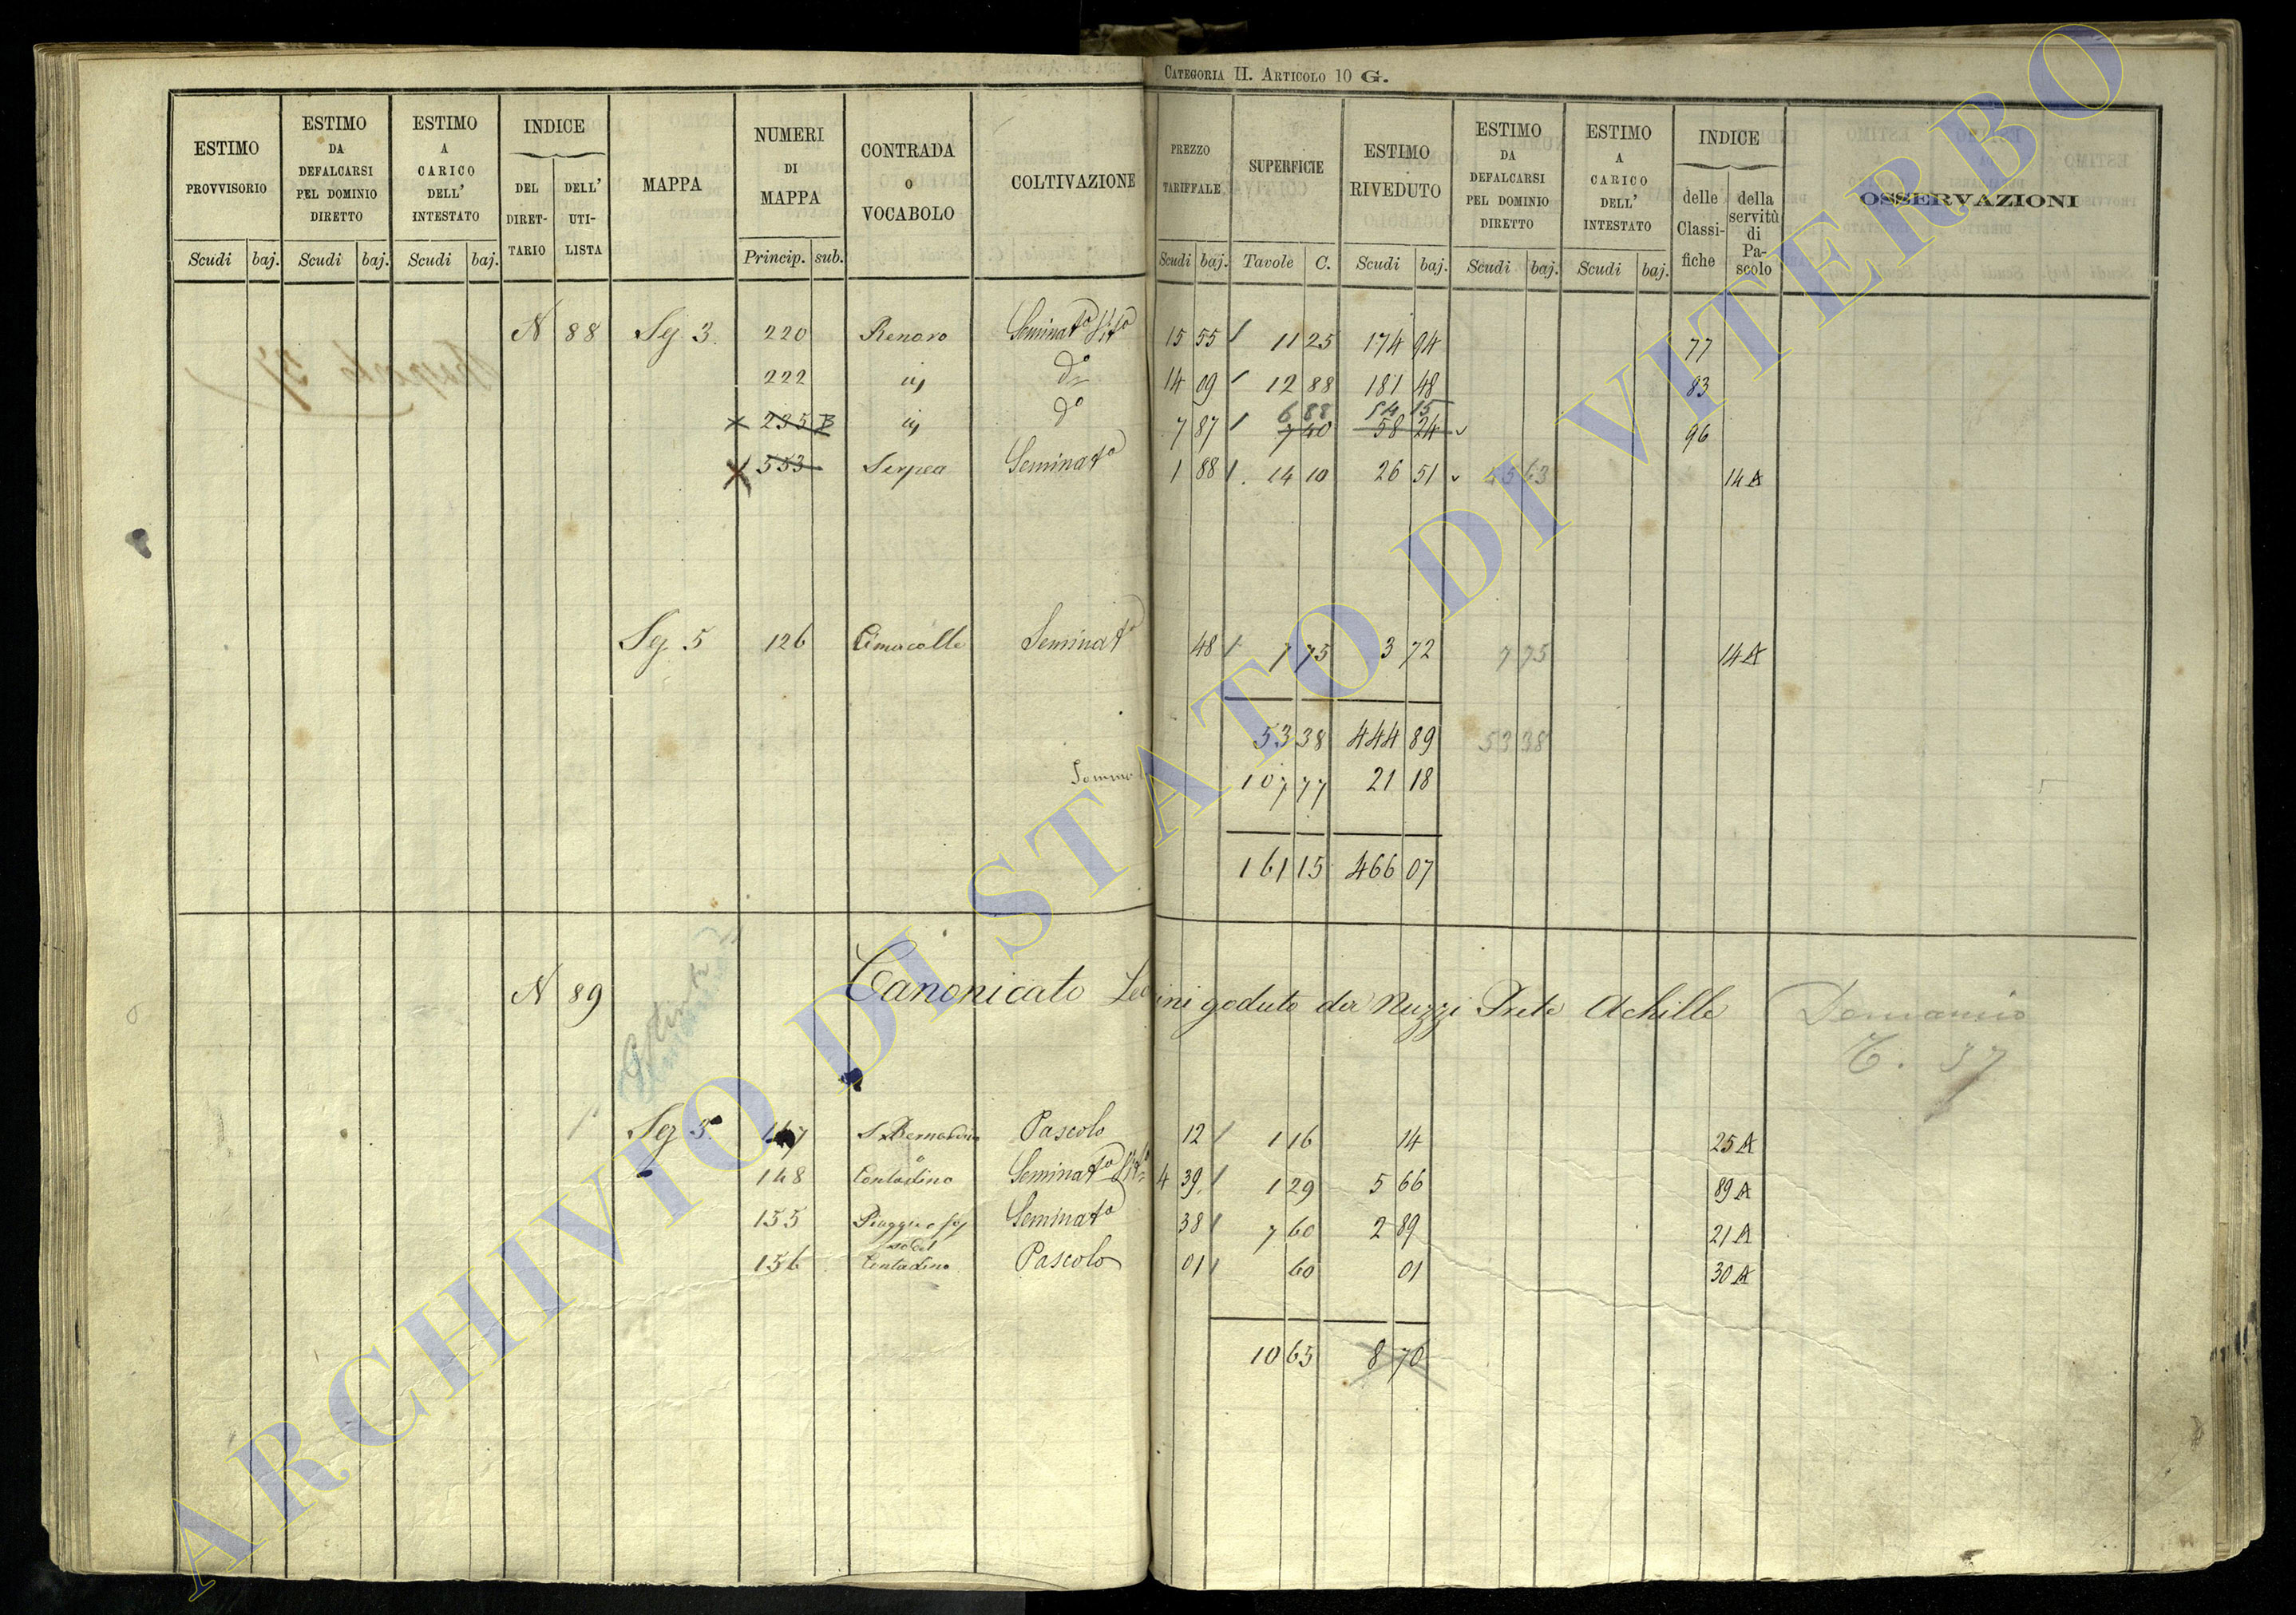 CATEGORIA II. ARTICOLO 10 G.
ESTIMO PROVVISORIO Scudi baj.
ESTIMO DA DEFALCARSI PEL DOMINIO DIRETTO Scudi baj.
ESTIMO A CARICO DELL' INTESTATO Scudi baj.
INDICE DEL DIRET- TARIO DELL' UTI- LISTA
MAPPA
NUMERI DI MAPPA Princip. sub.
CONTRADA O VOCABOLO
COLTIVAZIONE
PREZZO TARIFFALE Scudi baj.
SUPERFICIE Tavole C.
ESTIMO RIVEDUTO Scudi baj.
ESTIMO DA DEFALCARSI PEL DOMINIO DIRETTO Scudi baj.
ESTIMO A CARICO DELL' INTESTATO Scudi baj.
INDICE delle Classi- fiche della servitù di Pa- scolo
OSSERVAZIONI
N 88 Seg 3. 220 Renaro Seminato Vito 15 55 11 25 174 94 77
222 id do 14 09 12 88 181 48 83
6 88 54 15
235 B id do 7 87 7 40 58 24 96
553 Serpea Seminato 1 88 14 10 26 51 45 63 14 A
Seg 5 126 Cimacolle Seminato 48 7 75 3 72 7 75 14 A
53 38 444 89 53 38
Somma 107 77 21 18
161 15 466 07
N 89 Canonicato goduto da Nuzzi Prete Achille Demanio
C. 37
Seg 5 147 S. Bernardino Pascolo 12 1 16 14 25 A
148 Contadino Seminato Vito 4 39 1 29 5 66 89 A
155 Seminato 38 7 60 2 89 21 A
156 Contadino Pascolo 01 60 01 30 A
10 65 8 70
ARCHIVIO DI STATO DI VITERBO